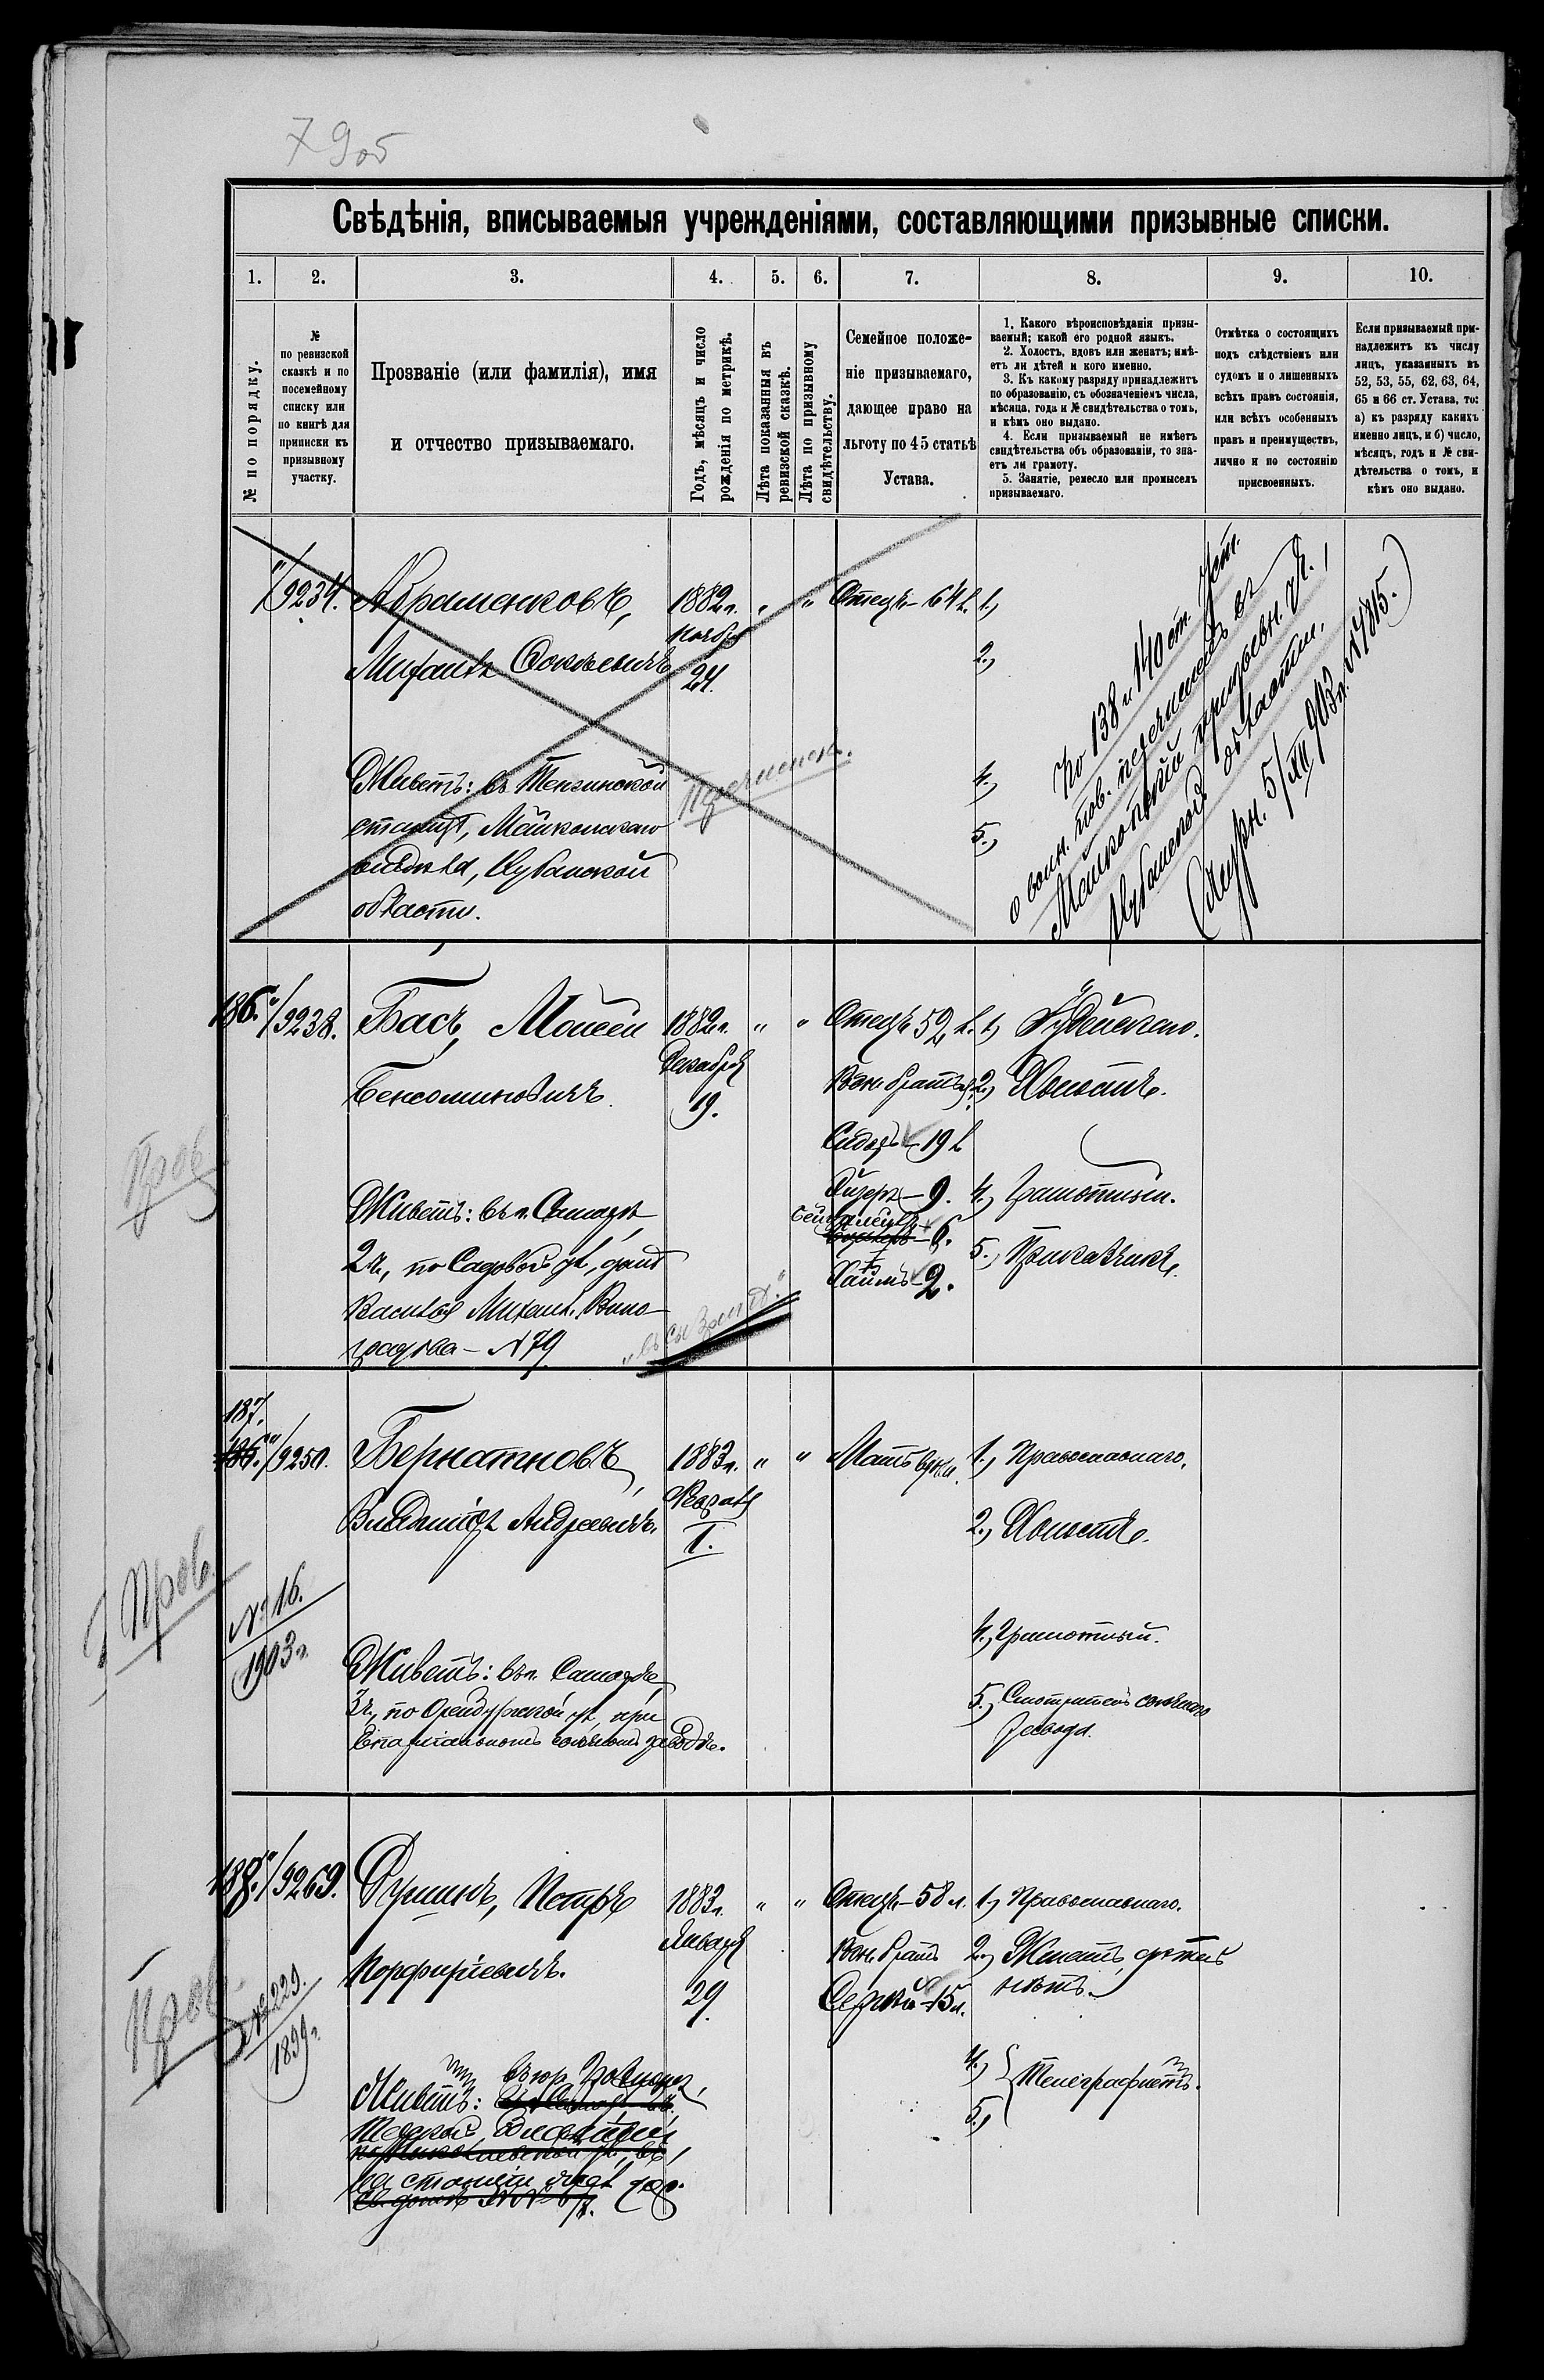 79об
Свѣдѣнія, вписываемыя учрежденіями, составляющими призывные списки.
1. 2. 3. 4. 5. 6. 7. 8. 9. 10.
№ по порядку.
№
по ревизской
сказкѣ и по
посемейному
списку или
по книгѣ для
приписки къ
призывному
участку.
Прозваніе (или фамилія), имя
и отчество призываемаго.
Годъ, мѣсяцъ и число
рожденія по метрикѣ.
Лѣта показанныя въ
ревизской сказкѣ.
Лѣта по призывному
свидѣтельству.
Семейное положе-
ніе призываемаго,
дающее право на
льготу по 45 статьѣ
Устава.
1. Какого вѣроисповѣданія призы-
ваемый; какой его родной языкъ.
2. Холостъ, вдовъ или женатъ; имѣ-
етъ ли дѣтей и кого именно.
3. Къ какому разряду принадлежитъ
по образованію, съ обозначеніемъ числа,
мѣсяца, года и № свидѣтельства о томъ,
и кѣмъ оно выдано.
4. Если призываемый не имѣетъ
свидѣтельства объ образованіи, то зна-
етъ ли грамоту.
5. Занятіе, ремесло или промыселъ
призываемаго.
Отмѣтка о состоящихъ
подъ слѣдствіемъ или
судомъ и о лишенныхъ
всѣхъ правъ состоянія,
или всѣхъ особенныхъ
правъ и преимуществъ,
лично и по состоянію
присвоенныхъ.
Если призываемый при-
надлежитъ къ числу
лицъ, указанныхъ въ
52, 53, 55, 62, 63, 64,
65 и 66 ст. Устава, то:
а) къ разряду какихъ
именно лицъ, и б) число,
мѣсяцъ, годъ и № сви-
дѣтельства о томъ, и
кѣмъ оно выдано.
"/9234.
Абраменковъ,
Михаилъ
Живетъ: въ Тенгинской
станицѣ, Майкопскаго
отдѣла, Кубанской
области.
1882г.
Ноября
24.
" "
Перечисленъ.
Отецъ - 64 л.
1.,
2.,
4.,
5.,
По 138 и 140 ст. Уст.
о воин. пов. перечисленъ въ
Майкопскій призывн. уч.,
Кубанской области.
(Журн. 5/XII 903г. №
186. "/9238.
Басъ, Моисей
Беньяминовичъ.
Живетъ: въ г. Самарѣ,
2ч., по Садовой ул., домъ
Василія Михаил. Вино-
градова - №79
1882г.
Декабря
19.
" "
Отецъ 52 л.
Род. братья:
Сидоръ - 19 л
Лизеръ - 9.
- 6.
Хаимъ - 2.
1., Іудейскаго.
2., Холостъ.
4., Грамотный.
5., Приказчикъ.
Пров.
187.
186. "/9250.
Бернатновъ,
Владиміръ Андреевичъ.
№ 16.
1903г.
Живетъ: въ г. Самарѣ,
3ч., по Оренбургской ул., при
Епархіальномъ свѣчномъ заводѣ.
1883г.
Февраля
1.
" "
Мать вдова.
1., Православнаго.
2., Холостъ.
4., Грамотный.
5., Смотритель свѣчнаго
завода.
Пров.
188. "/9269.
Душинъ, Петръ
Порфиріевичъ.
№229.
1899г.
Живетъ:
на станціи жел. дор.
1883г.
Января
29.
" "
Отецъ - 58 л.
Род. братъ
Сергѣй - 15 л.
1., Православнаго.
2., Женатъ, дѣтей
нѣтъ.
4.,
5.,
Телеграфистъ.
Пров.